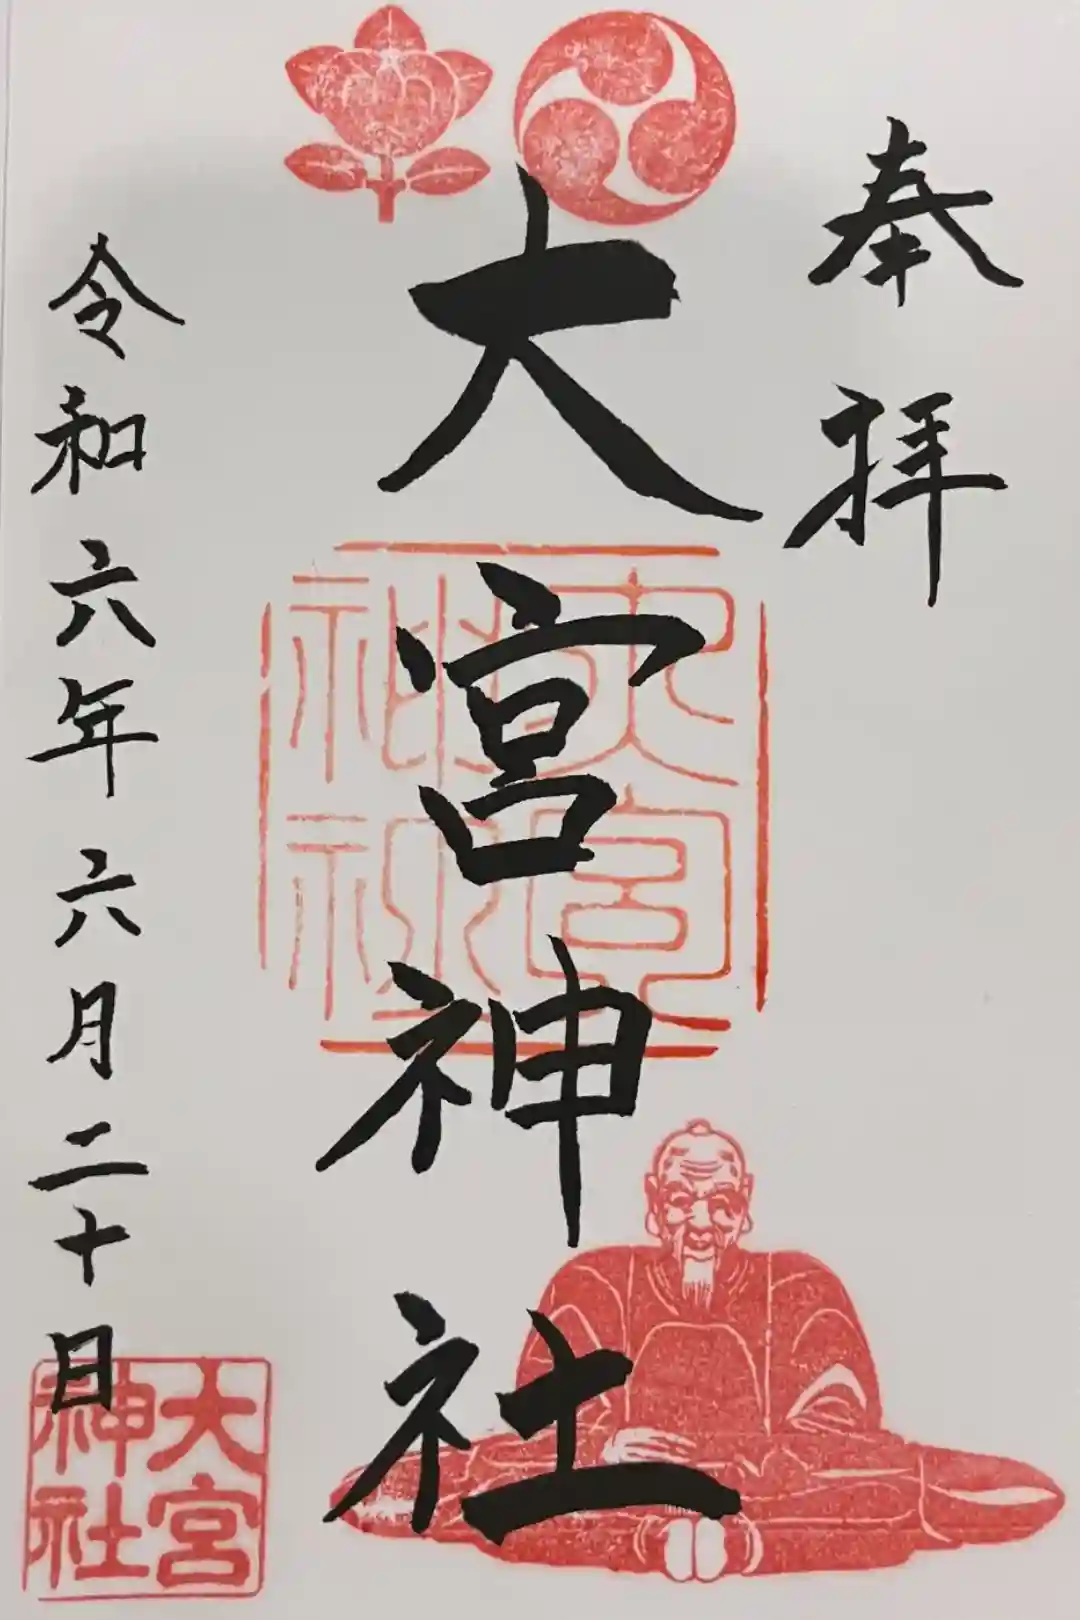 奉拝
大宮神社
大宮神社
令和六年六月二十日
大宮神社